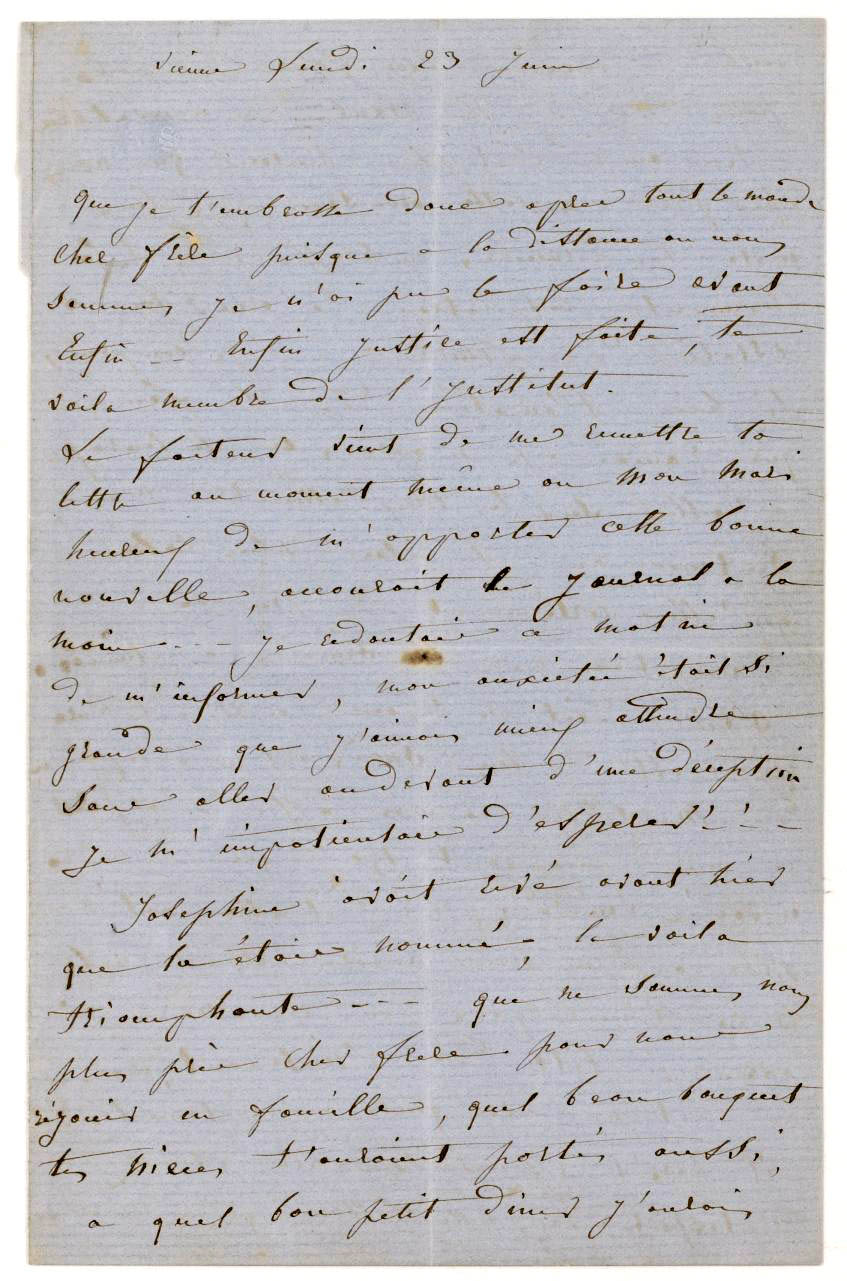 Vienne Lundi 23 Juin
que je t'embrasse donc apres tout le monde
cher frère puisque a la distance ou nous
sommes je n'ai pu le faire avant
Enfin -- Enfin justice est faite, te
voila membre de l'Institut.
Le facteur vient de me remettre ta
lettre au moment même ou mon mari
heureux de m'apporter cette bonne
nouvelle, accourait le journal a la
main --- je redoutais ce matin
de m'informer, mon anxietée était si
grande que j'aimais mieux attendre
sans aller audevant d'une déception
je m'impatientais d'esperer!-!-
Josephine avait revé avant hier
que tu étais nommé, la voila
triomphante --- que ne sommes nous
plus près cher frere pour nous
réjouir en famille, quel beau bouquet
tes nieces t'auraient portés aussi,
a quel bon petit diner j'aurais